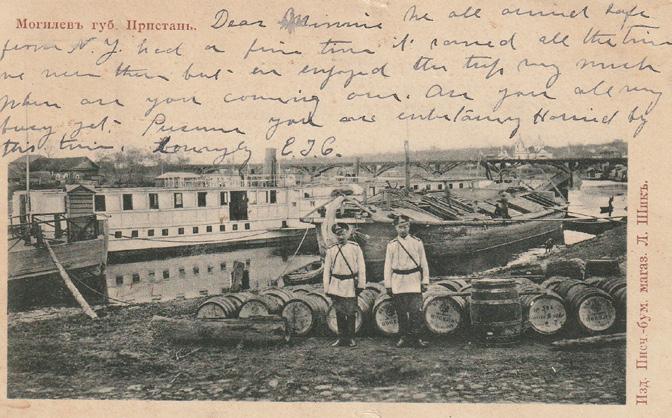 Могилевъ губ. Пристань.
Dear Minnie we all arrived safe
from N.Y. had a fine time it rained all the time
we were there but we enjoyed the trip very much
when are you coming over. Are you all very
busy yet. you are entertaining by
this time. Lovingly E.J.C.
Изд. Писч.-бум. магаз. Л. Шикъ.